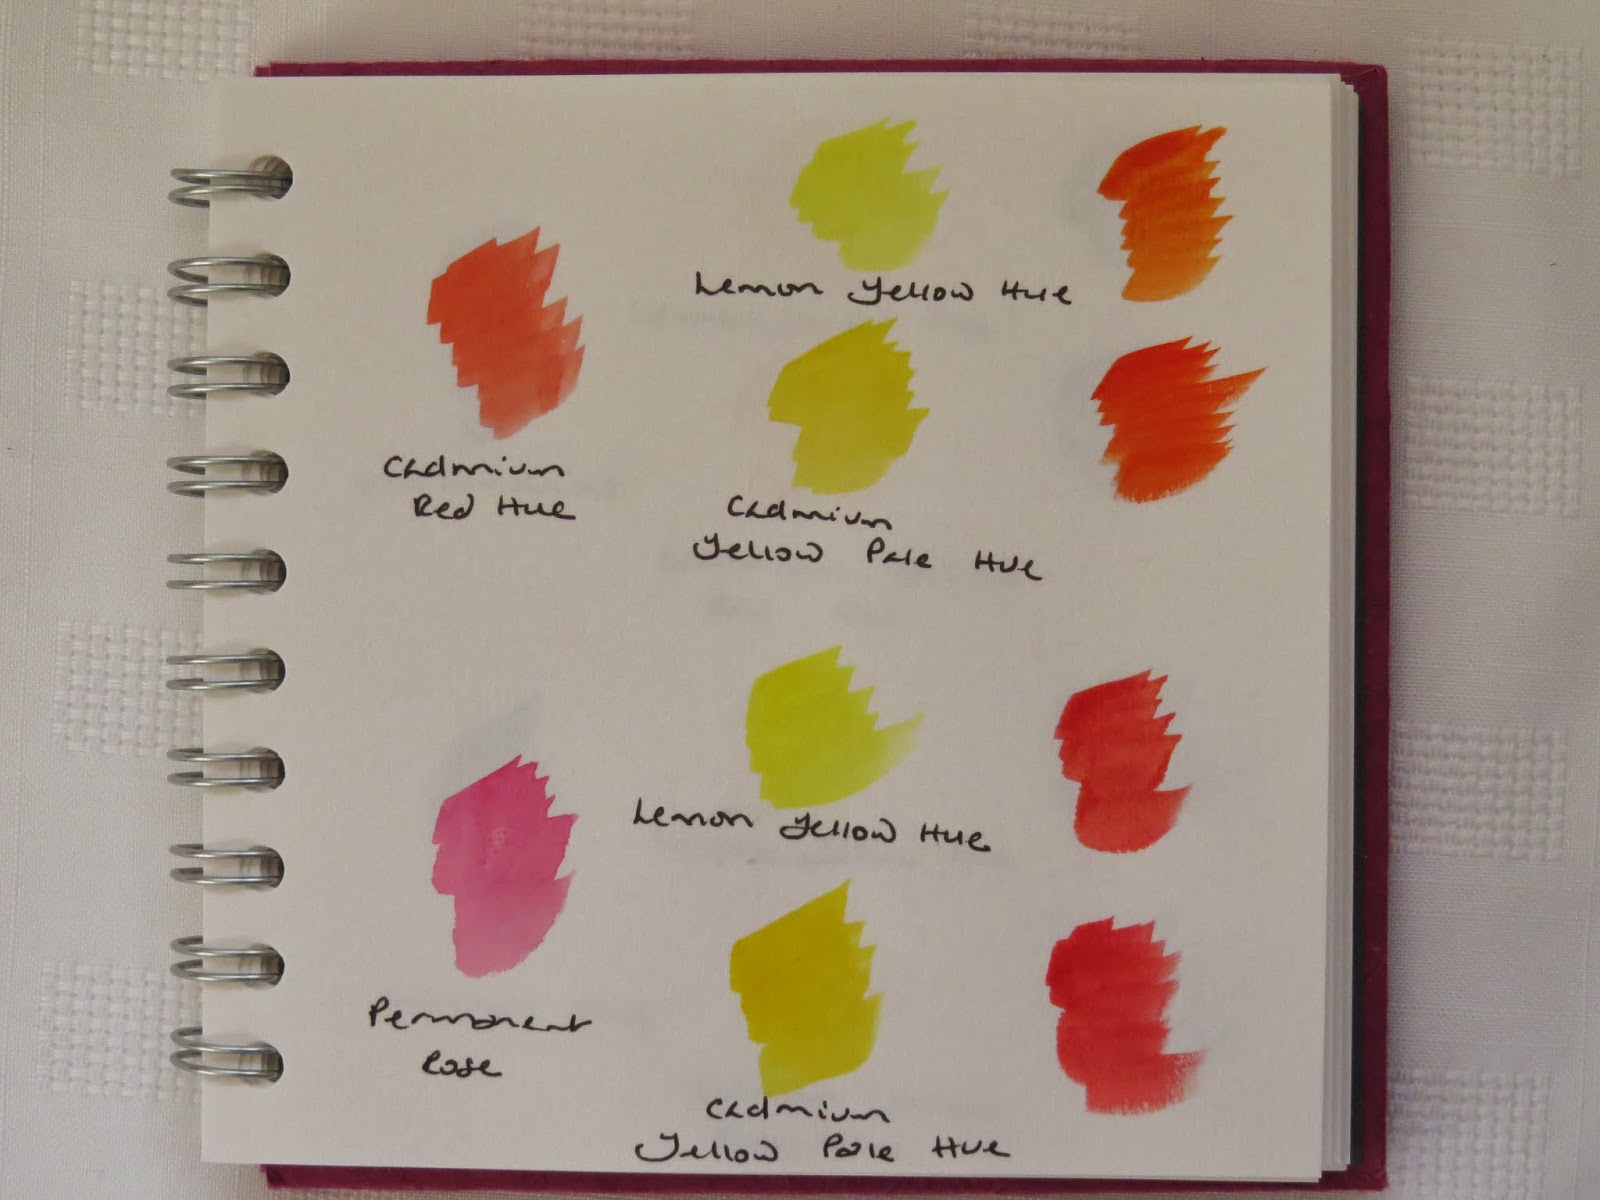 Lemon Yellow Hue
Cadmium
Red Hue
Cadmium
Yellow Pale Hue
Lemon Yellow Hue
Permanent
Rose
Cadmium
Yellow Pale Hue